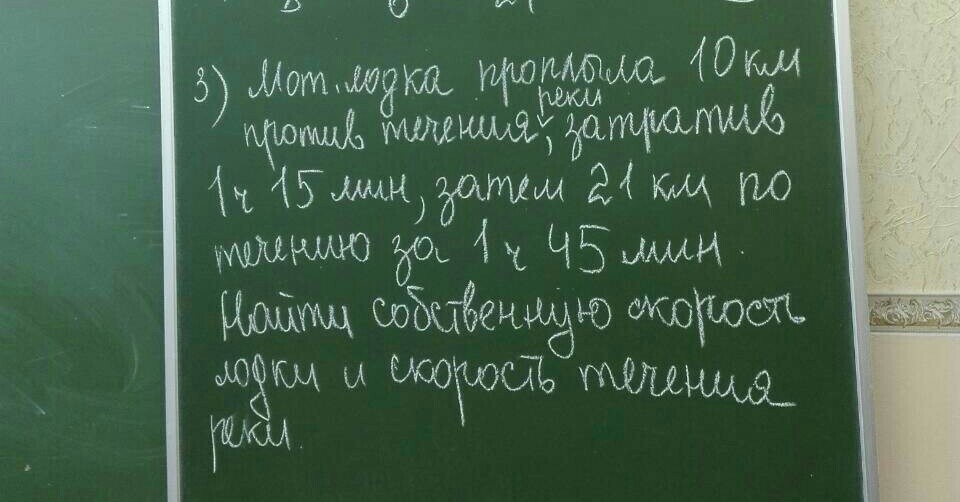 3) Мот. лодка проплыла 10 км
против течения реки, затратив
1 ч 15 мин, затем 21 км по
течению за 1 ч 45 мин.
Найти собственную скорость
лодки и скорость течения
реки.